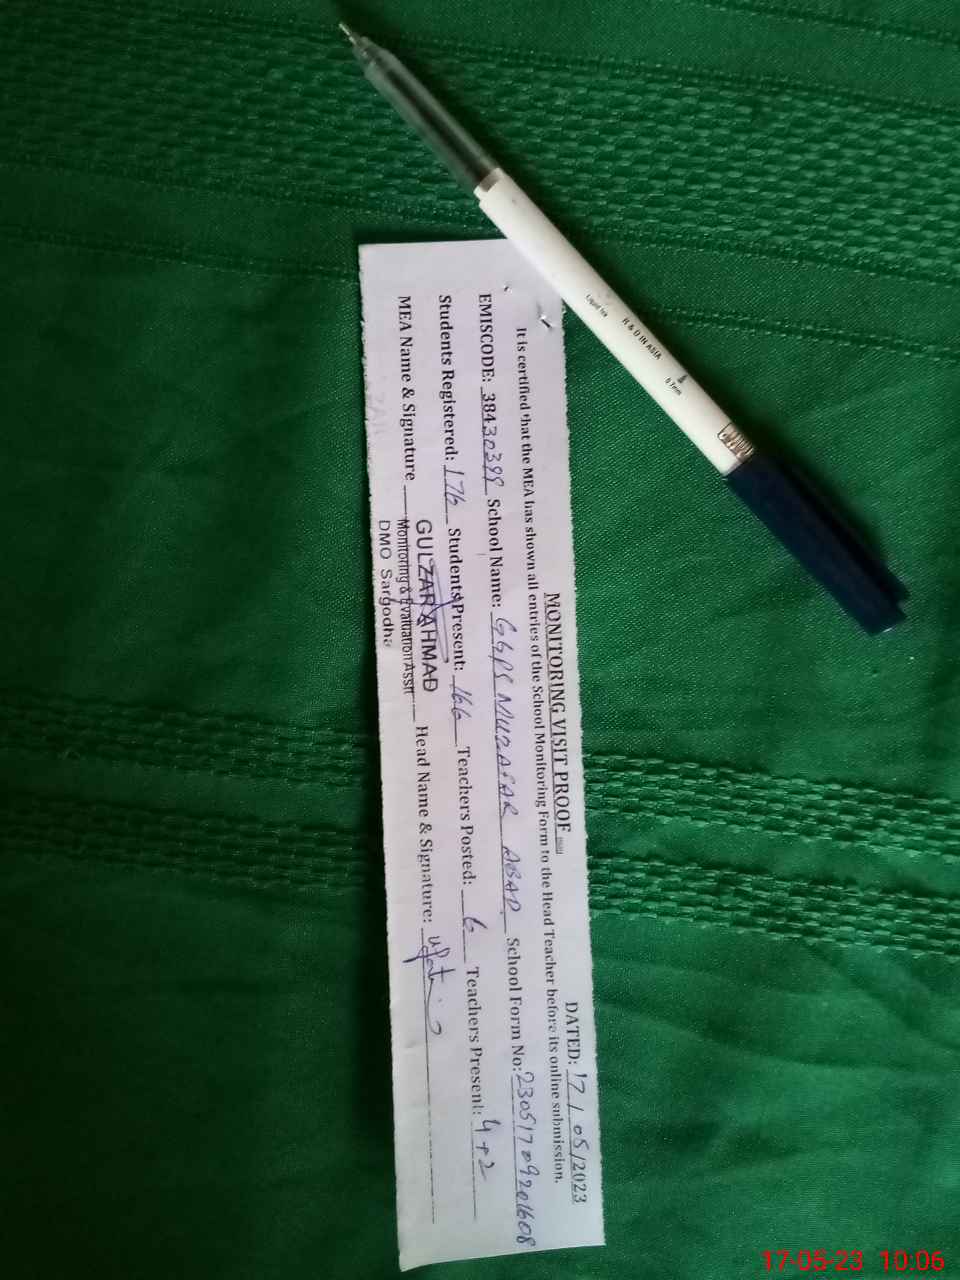 MONITORING VISIT PROOF
DATED: 17/05/2023
It is certified that the MEA has shown all entries of the School Monitoring Form to the Head Teacher before its online submission.
EMISCODE: 38430399 School Name: GGPS MUZAFAR ABAD School Form No: 23051709201608
Students Registered: 176 Students Present: 166 Teachers Posted: 6 Teachers Present: 4+2
MEA Name & Signature Head Name & Signature:
GULZAR AHMAD
Monitoring & Evaluation Asstt
DMO Sargodha
Liquid Ink
R & D IN ASIA
0.7mm
17-05-23 10:06